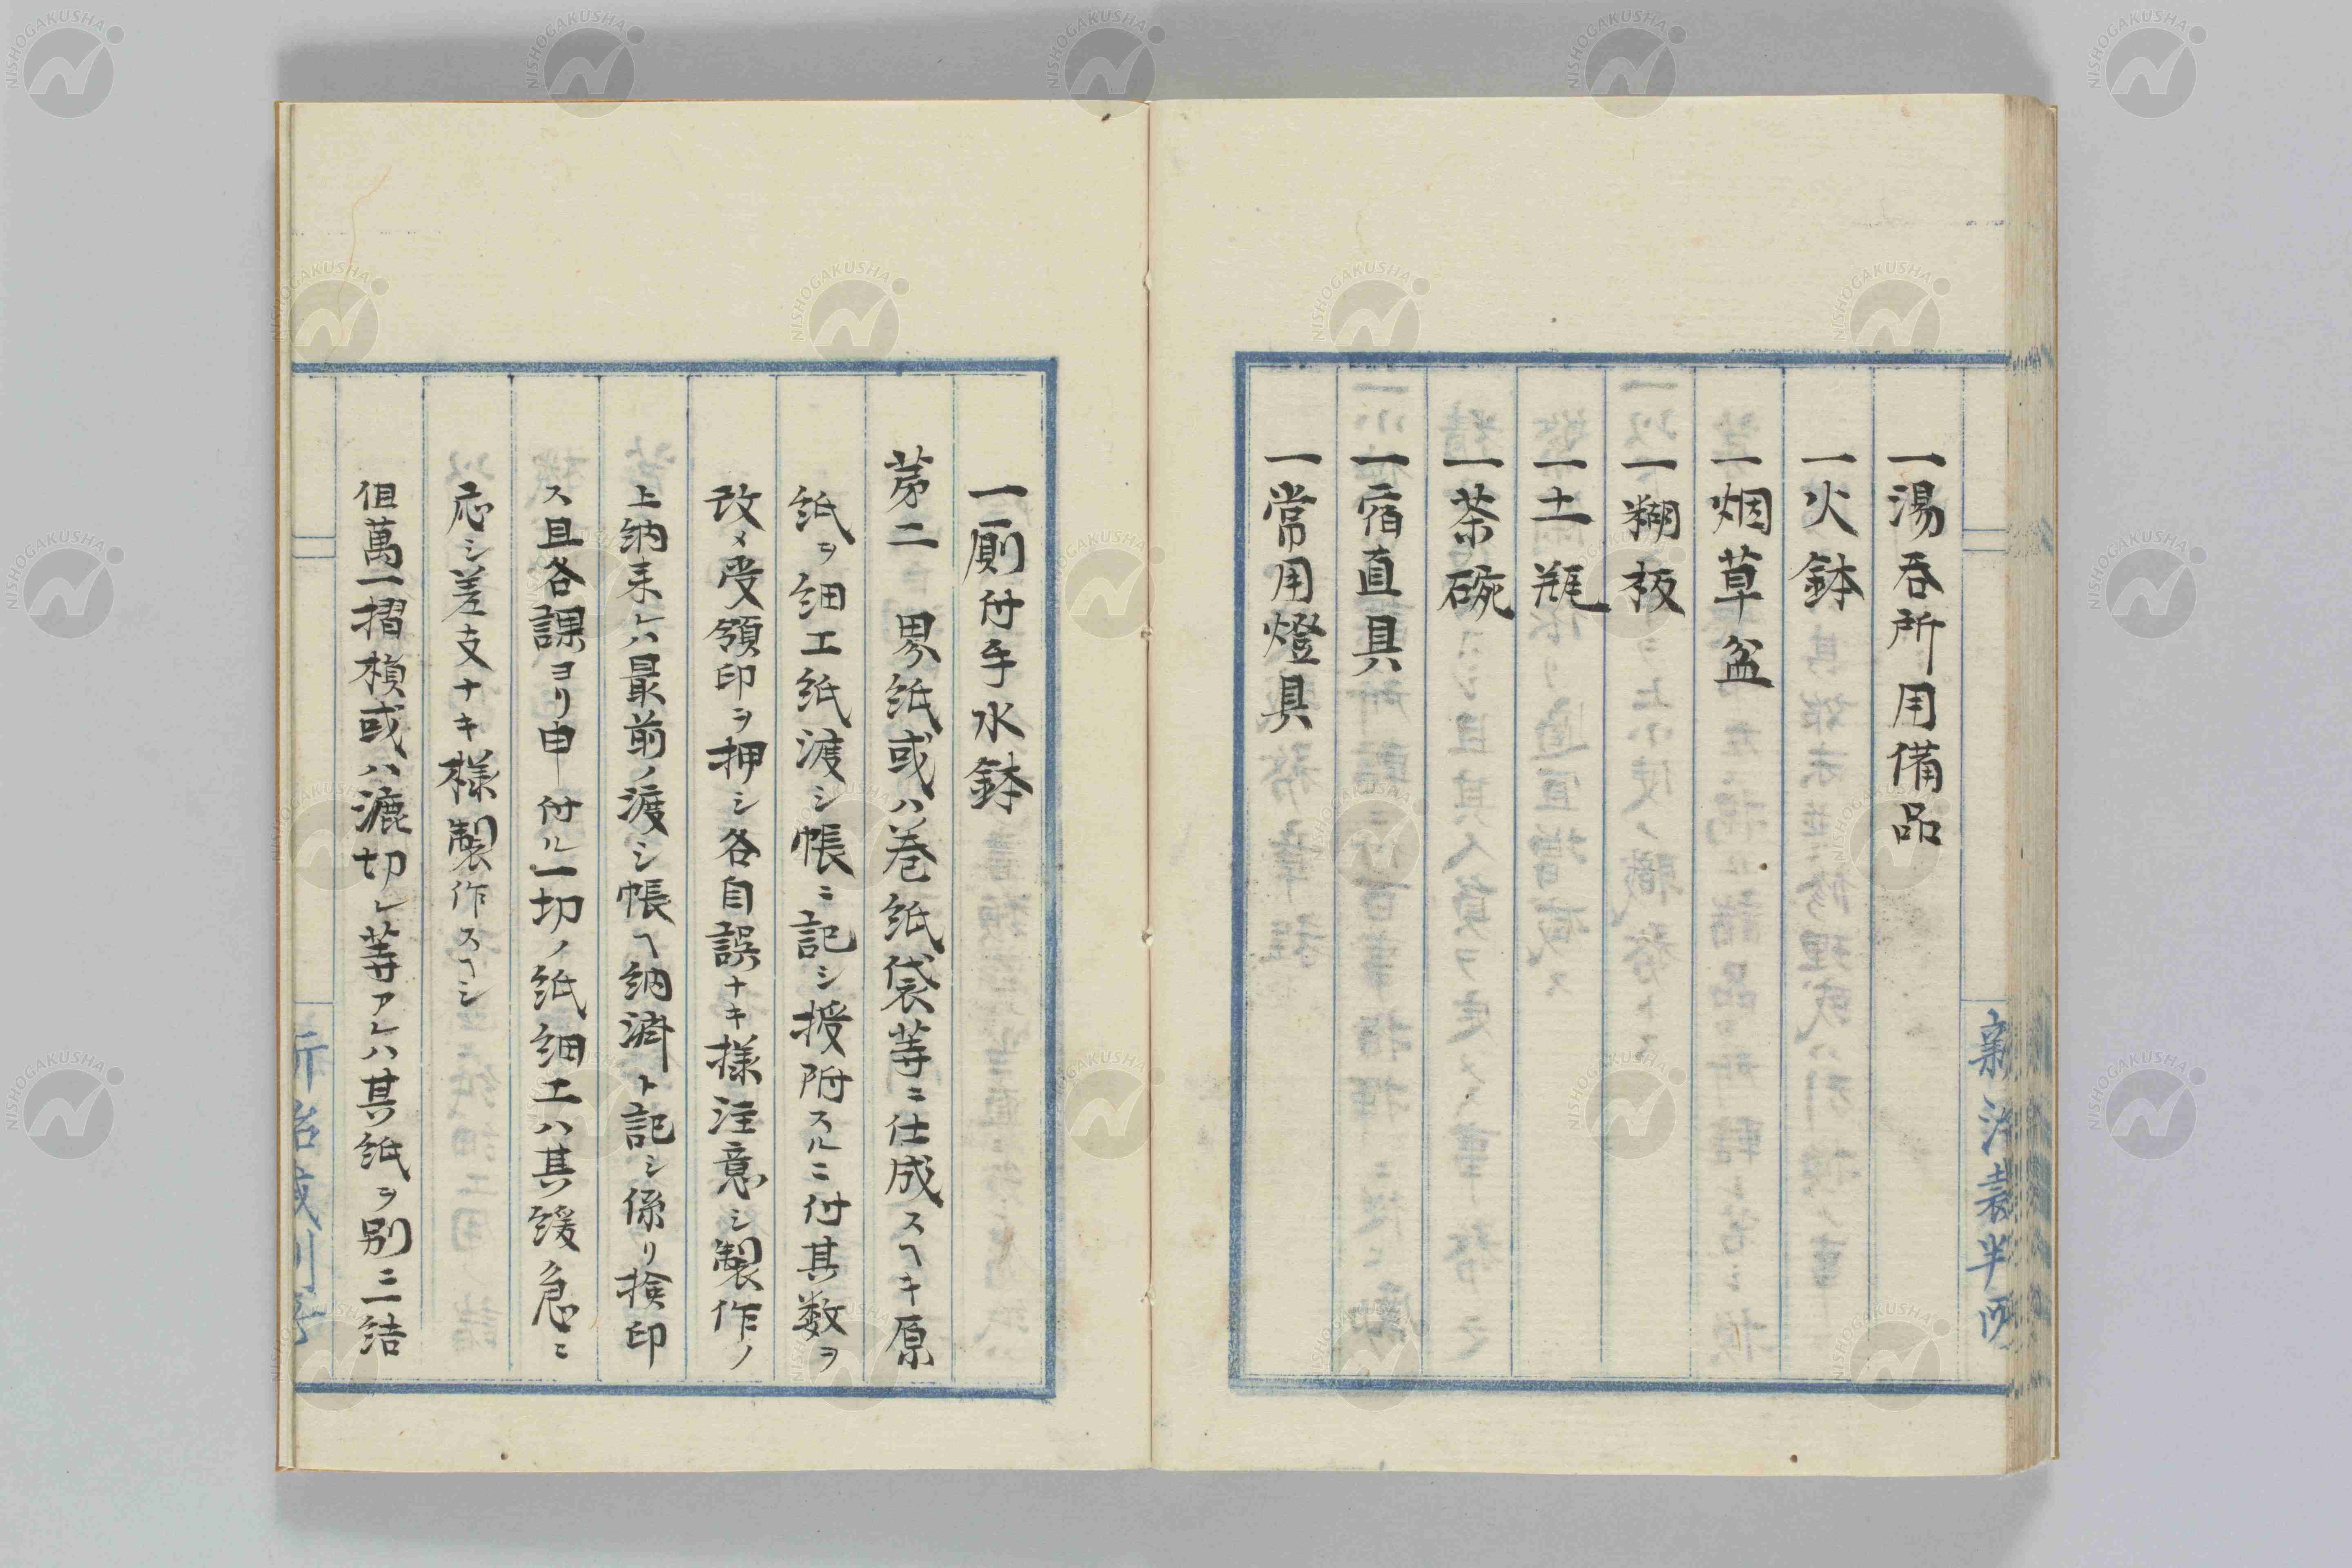 一湯呑所用備品
一火鉢
一烟草盆
一糊板
一土瓶
一茶碗
一宿直具
一常用燈具
一厠付手水鉢
第二 界紙或ハ巻紙袋等ニ仕成スヘキ原
紙ヲ細工紙渡シ帳ニ記シ授附スルニ付其数ヲ
改メ受領印ヲ押シ各自誤ナキ様注意シ製作ノ
上納来レハ最前ノ渡シ帳ヘ納済ト記シ係リ検印
ス且各課ヨリ申付ル一切ノ紙細工ハ其緩急ニ
応シ差支ナキ様製作スヘシ
但萬一摺損或ハ漉切レ等アレハ其紙ヲ別ニ結
NISHOGAKUSHA